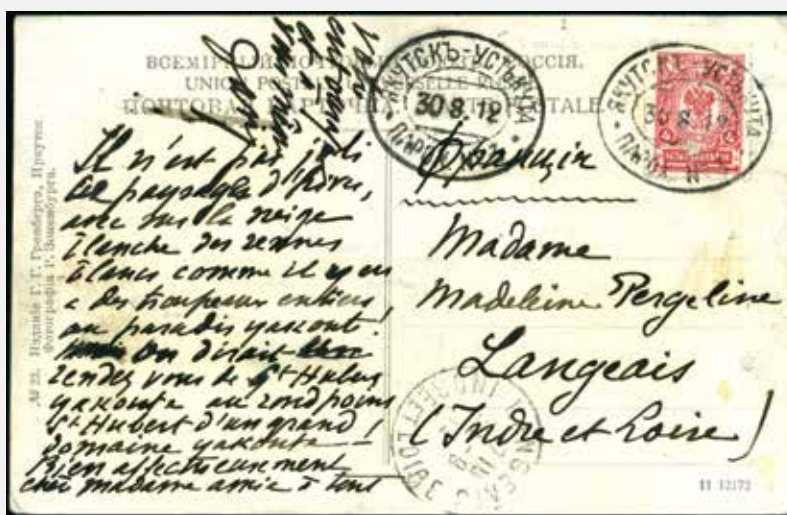 ВСЕМІРНЫЙ ПОЧТОВЫЙ СОЮЗЪ. РОССІЯ.
UNION POSTALE UNIVERSELLE. RUSSIE.
ПОЧТОВАЯ КАРТОЧКА. CARTE POSTALE.
ЯКУТСКЪ-УСТЬКУТА
30 8. 12
ПАРОХ.
ЯКУТСКЪ-УСТЬКУТА
30 8 12
ПАРОХ. N
4
№ 23. Изданіе Г. Г. Громберга, Иркутск
Фотографія Р. Зоненбурга.
Il n'est pas joli
ce paysage d'hiver,
avec sur la neige
blanche des rennes
blancs comme il y en
a des troupeaux entiers
au paradis yakoute!
On dirait un
rendez vous de St Hubert
yakoute au rond point
St Hubert d'un grand
domaine yakoute —
Bien affectueusement
chère madame amie à tout
Франція
Madame
Madeleine Pergeline
Langeais
(Indre et Loire)
LANGEAIS
INDRE ET LOIRE
11 12172